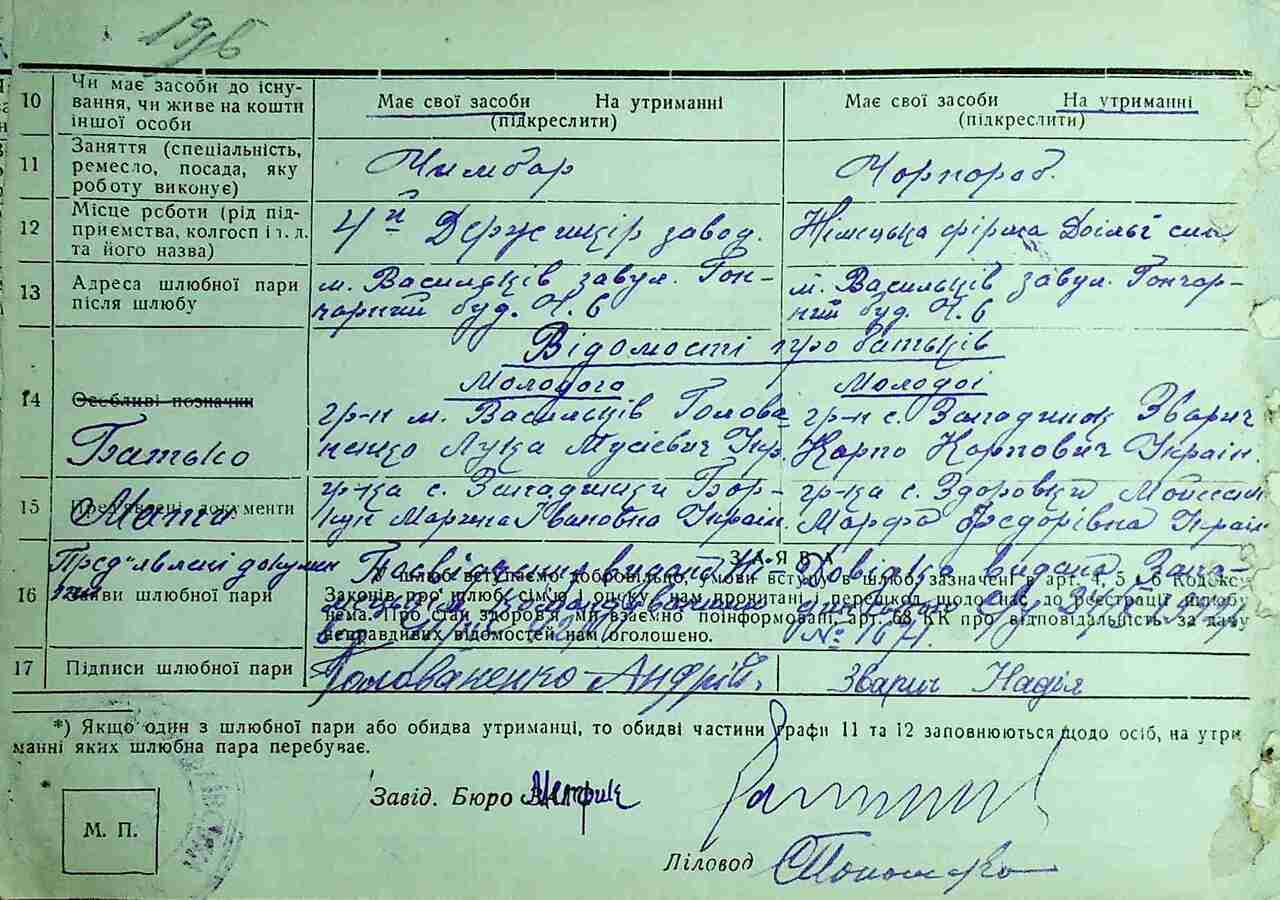 10 Чи має засоби до існу-
вання, чи живе на кошти
іншої особи
Має свої засоби На утриманні
(підкреслити)
Має свої засоби На утриманні
(підкреслити)
11 Заняття (спеціальність,
ремесло, посада, яку
роботу виконує)
Чимбар
Чорнороб.
12 Місце роботи (рід під-
приємства, колгосп і т. д.
та його назва)
4й Держшкір завод.
Німецька фірма
13 Адреса шлюбної пари
після шлюбу
м. Васильків завул. Гон-
чарний буд. Ч. 6
м. Васильків завул. Гончар-
ний буд. Ч. 6
Відомості про батьків
Молодого
Молодої
14 Особливі позначки
Батько
гр-н м. Васильків Голова-
ненко Лука Мусієвич Укр.
гр-н с. Западинок Зварич
Карпо Карпович Україн.
15 Пред'явлені документи
Мати
гр-ка с. Западинки Бор-
Марина Івановна Україн.
гр-ка с. Здоровки
Марфа Федорівна Україн
Пред'явлені докумен
ти
16 Заяви шлюбної пари
ЗАЯВА
У шлюб вступаємо добровільно, умови вступу в шлюб зазначені в арт. 4, 5 і 6 Кодексу
Законів про шлюб, сім'ю і опіку, нам прочитані і перешкод щодо нас до реєстрації шлюбу
нема. Про стан здоров'я ми взаємно поінформовані, арт. 68 КК про відповідальність за дачу
неправдивих відомостей нам оголошено.
Посвідчення видано
Довідка видана Запа-
№ 1671.
17 Підписи шлюбної пари
Голованенко Андрій.
Зварич Надія
*) Якщо один з шлюбної пари або обидва утриманці, то обидві частини графи 11 та 12 заповнюються щодо осіб, на утри
манні яких шлюбна пара перебуває.
Завід. Бюро Метрик
М. П.
Діловод